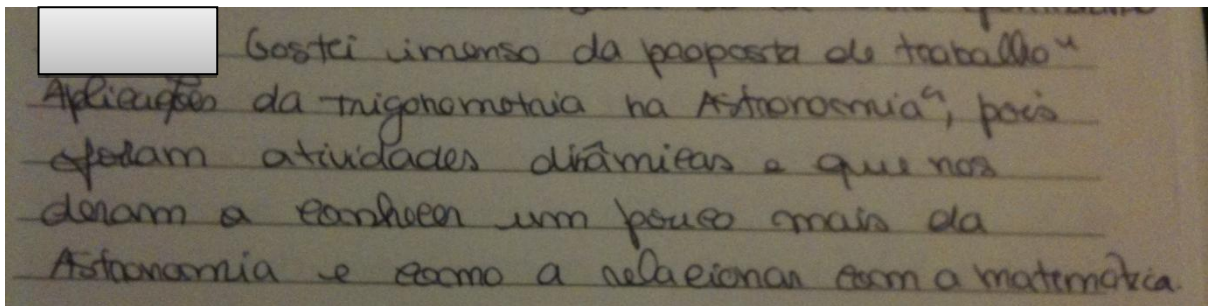 Gostei imenso da proposta de trabalho "
Aplicações da trigonometria na Astronomia", pois
foram atividades dinâmicas e que nos
deram a conhecer um pouco mais da
Astronomia e como a relacionar com a matemática.